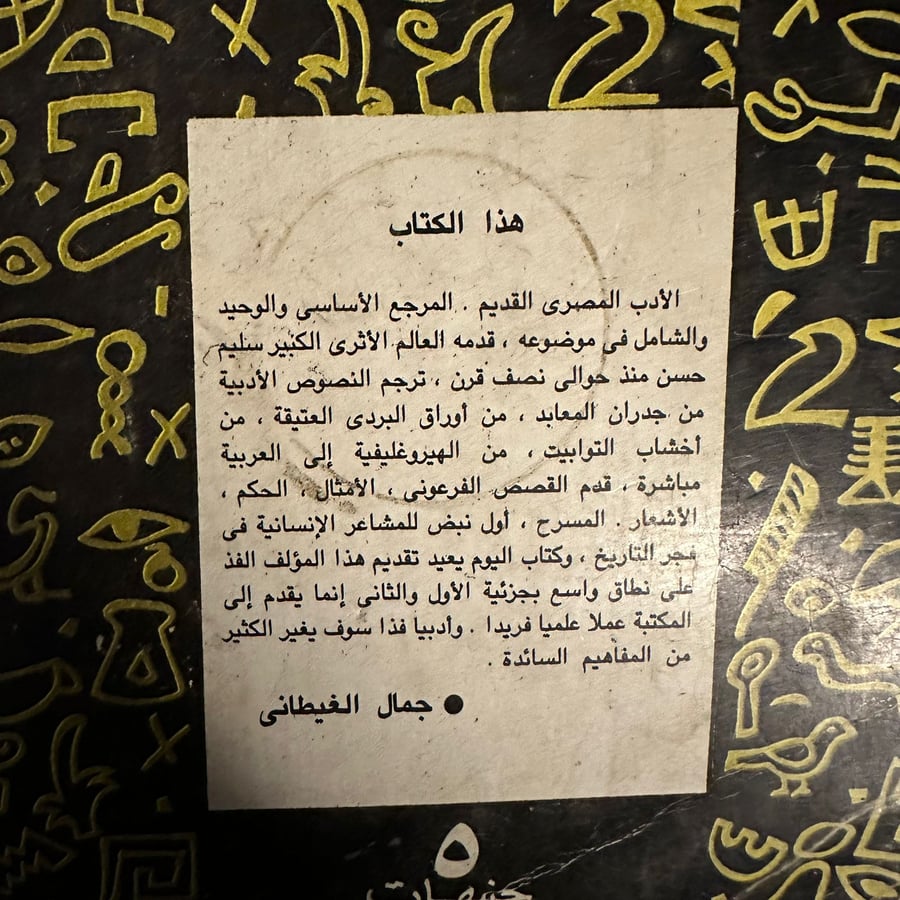 هذا الكتاب
الأدب المصرى القديم . المرجع الأساسى والوحيد
والشامل فى موضوعه ، قدمه العالم الأثرى الكبير سليم
حسن منذ حوالى نصف قرن ، ترجم النصوص الأدبية
من جدران المعابد ، من أوراق البردى العتيقة ، من
أخشاب التوابيت ، من الهيروغليفية إلى العربية
مباشرة ، قدم القصص الفرعونى ، الأمثال ، الحكم ،
الأشعار . المسرح ، أول نبض للمشاعر الإنسانية فى
فجر التاريخ ، وكتاب اليوم يعيد تقديم هذا المؤلف الفذ
على نطاق واسع بجزئية الأول والثانى إنما يقدم إلى
المكتبة عملا علميا فريدا . وأدبيا فذا سوف يغير الكثير
من المفاهيم السائدة .
● جمال الغيطانى
٥
جنيهات